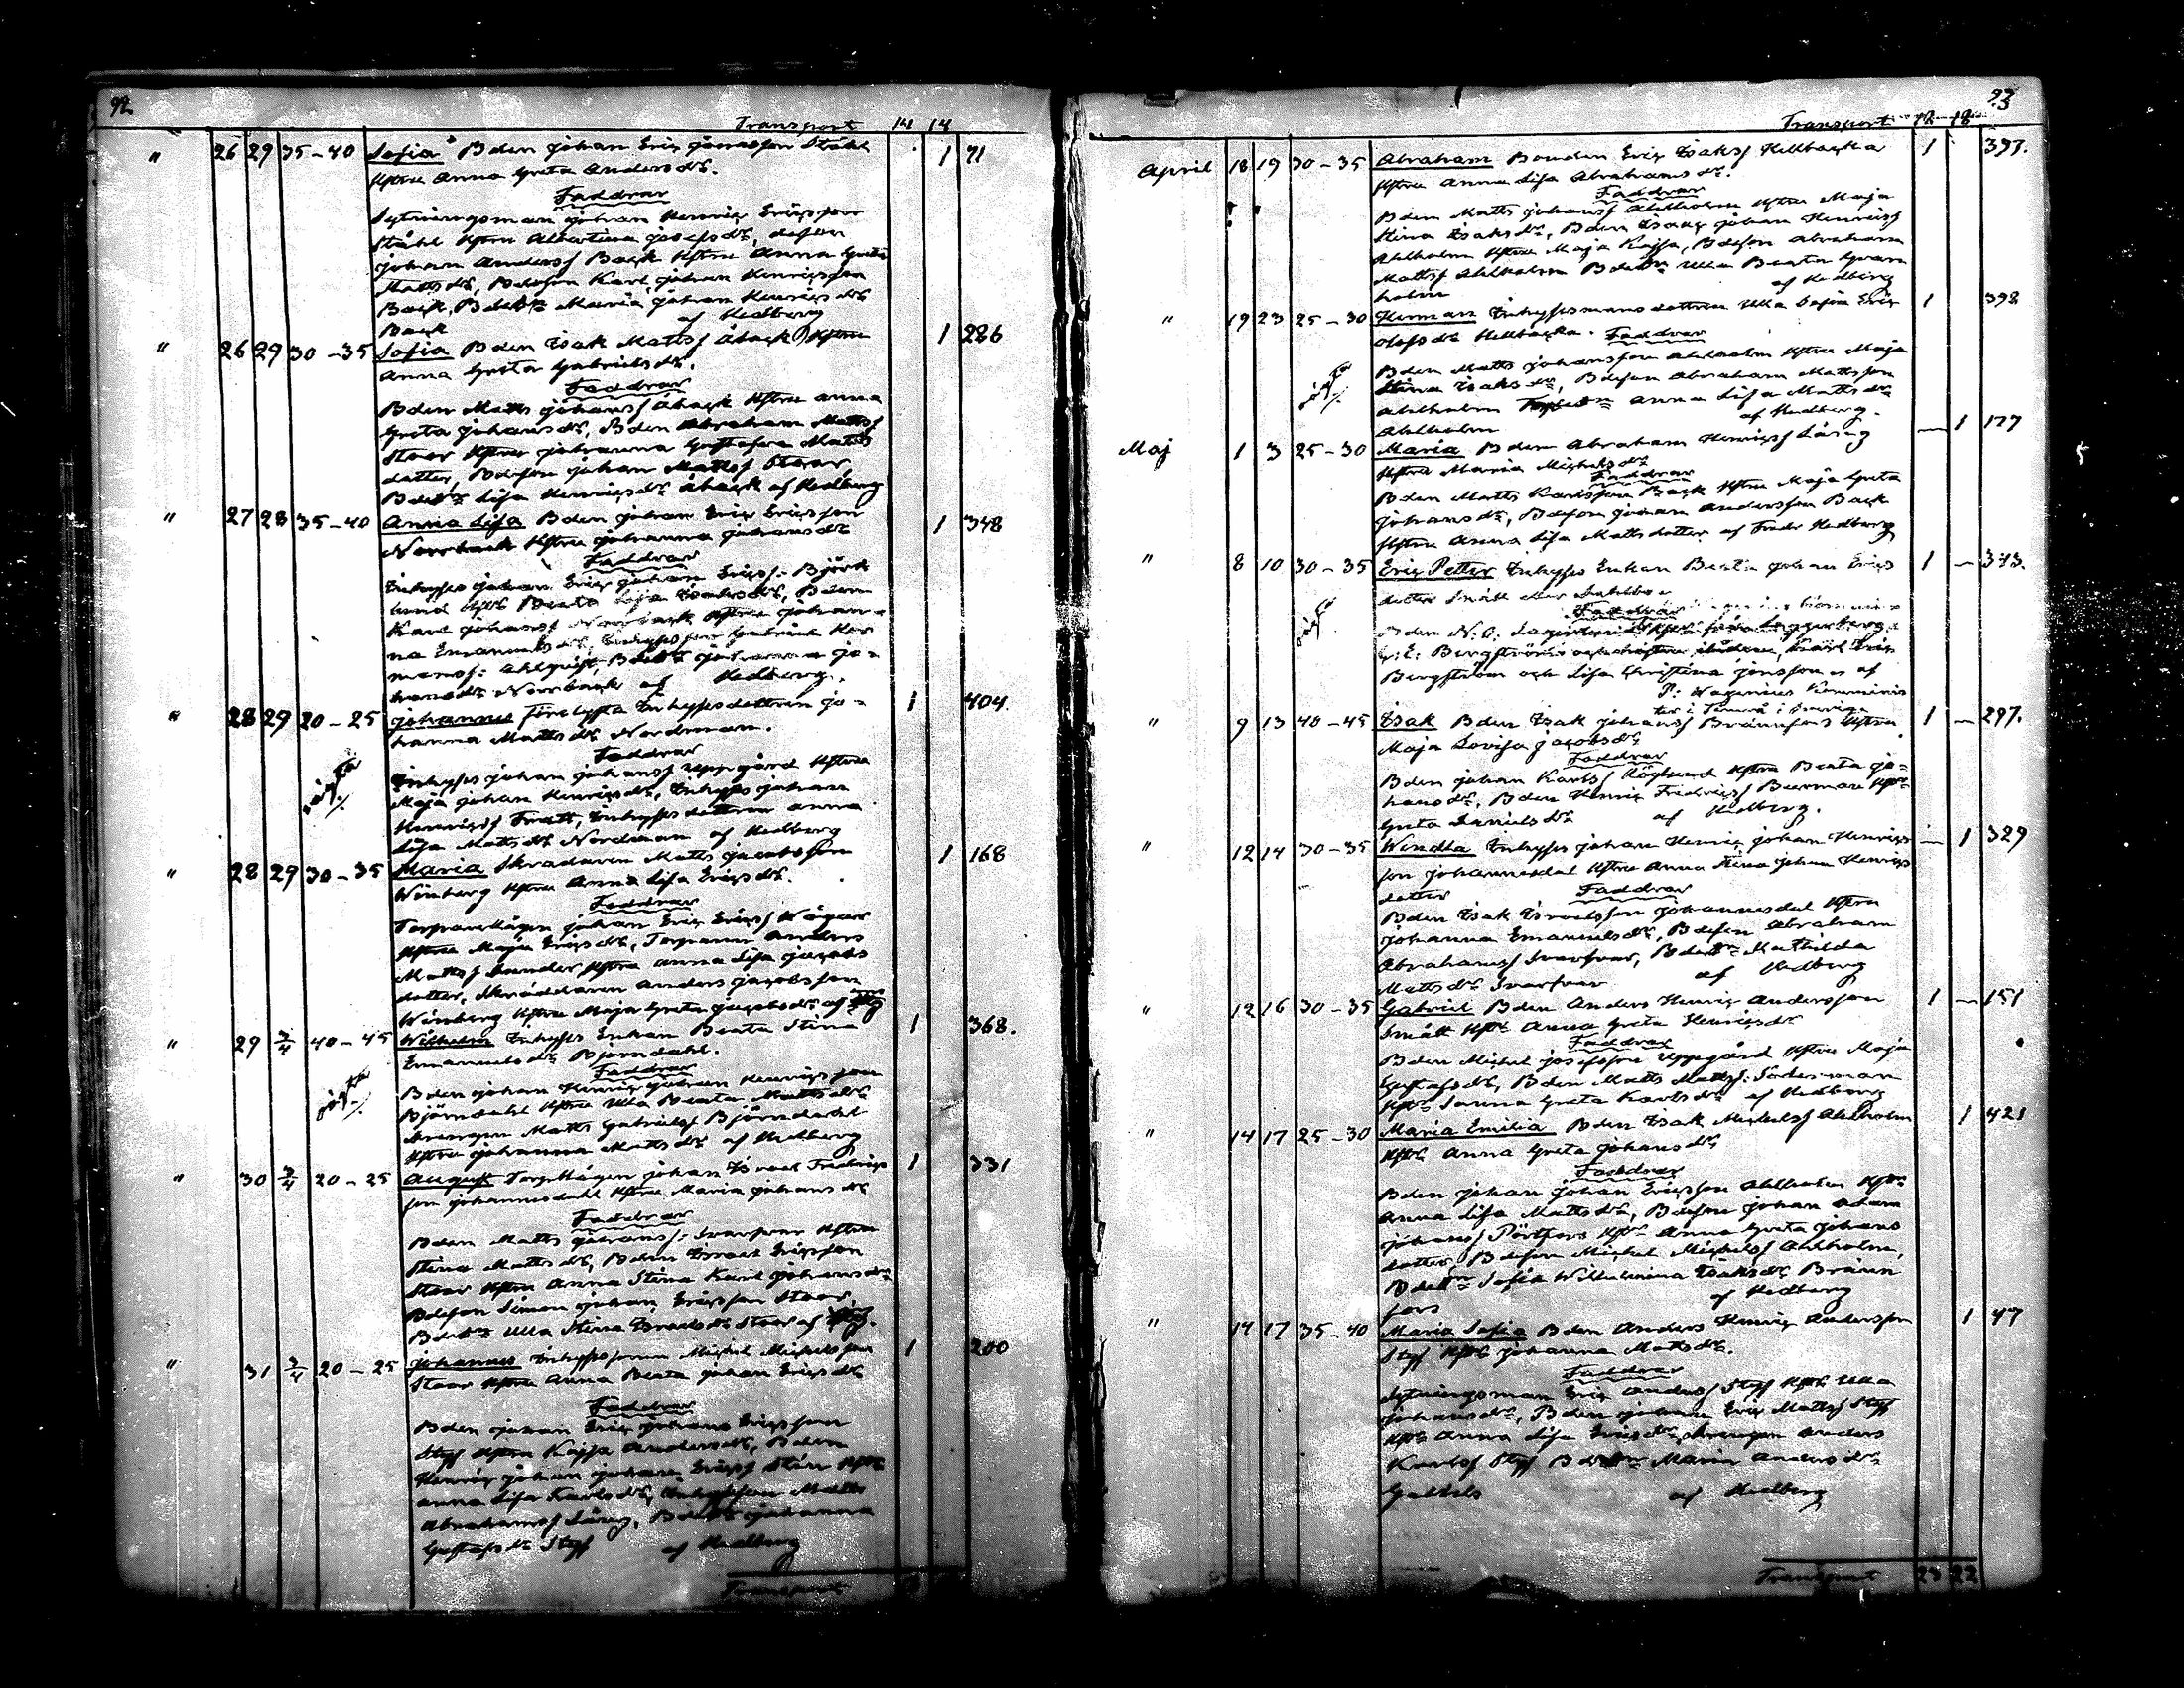 92
Transport 14 14
" 26 29 35-40 Sofia Bden Johan Eric Jonasson Ståhl 1 71
Hstru Anna Greta Andersdr.
Faddrar
Sytningsman Johan Henric Ericsson
Ståhl Hstru Albertina Josefsdr,
Johan Anderss Back Hstru Anna Greta
Mattsdr, Bdeson Karl Johan Henricsson
Back, Bdedtr Maria Johan Henricsdr
Back af Hedberg
" 26 29 30-35 Sofia Bden Isak Mattss Åback Hstru 1 286
Anna Greta Gabrielsdr.
Faddrar
Bden Matts Johanss Åback Hstru Anna
Greta Johansdr, Bden Abraham Mattss
Stoor Hstru Johanna Gustafva Matts
dotter, Bdeson Johan Mattss Stoor,
Bdedtr Lisa Henricsdr Åback af Hedberg
" 27 28 35-40 Anna Lisa Bden Johan Eric Ericsson 1 348
Norrback Hstru Johanna Johansdr
Faddrar
Inhyses Johan Eric Johan Ericss: Björk
lund Hstr Beata Lisa Isaksdr, Bden
Karl Johanss Norrback Hstru Johan-
na Emanuelsdr, Gabriel Her
manss: Ahlqvist, Bdedtr Johanna Jo-
hansdr Norrback af Hedberg.
" 28 29 20-25 Johannes Inhysesdottren Jo- 1 404.
hanna Mattsdr Nordman.
Faddrar
Inhyses Johan Johanss Uppgård Hstru
Maja Johan Henricsdr, Inhyses Johan
Henricss Fratt, Inhysesdottren Anna
Lisa Mattsdr Nordman af Hedberg
" 28 29 30-35 Maria Skradaren Matts Jacobsson 1 168
Winberg Hstru Anna Lisa Ericsdr.
Faddrar
Torparehägen Johan Eric Ericss Wägar
Hstru Maja Ericsdr, Torparen Anders
Mattss Sunder Hstru Anna Lisa Jacobs
dotter, Skräddaren Anders Jacobsson
Winberg Hstru Maja Greta Jacobsdr af
" 29 2/4 40-45 Wilhelm Inhyses Enkan Beata Stina 1 368.
Emanuelsdr Björndahl.
Faddrar
Bden Johan Henric Johan Henricsson
Björndahl Hstru Ulla Beata Mattsdr
Drengen Matts Gabrielss Björndahl
Hstru Johanna Mattsdr af Hedberg
" 30 2/4 20-25 August Torphägen Johan Israel Fredrics 1 331
son Johannesdahl Hstru Maria Johansdr
Faddrar
Bden Matts Johanss: Svarfvar Hstru
Stina Mattsdr, Bden Israel Ericsson
Stoor Hstru Anna Stina Karl Johansdr
Bdeson Simon Johan Ericsson Stoor,
Bdedtr Ulla Stina Israelsdr Stoor af
" 31 2/4 20-25 Johannes Inhysessonen Michel Michelsson 1 200
Stoor Hstru Anna Beata Johan Ericsdr
Faddrar
Bden Johan Eric Johans Ericsson
Styf Hstru Kajsa Andersdr, Bden
Henric Johan Johan Ericss Stoor Hstr
Anna Lisa Karlsdr, Inhysesson Matts
Abrahamss Låsug, Bdedtr Johanna
Gustafsdr Styf af Hedberg
Transport
93
Transport 12 18
April 18 19 30-35 Abraham Bonden Eric Isakss Kellbacka 1 397.
Hstru Anna Lisa Abrahamsdr.
Faddrar
Bden Matts Johanss Ahlholm Hstru Maja
Stina Isaksdr, Bden Isaac Johan Henricss
Ahlholm Hstru Maja Kajsa, Bdeson Abraham
Mattss Ahlholm Bdedtr Ulla Beata Gran
holm af Hedberg
" 19 23 25-30 Herman Inhysesmansdottren Ulla Sofia Eric 1 398
Olofsdr Kellbacka. Faddrar
Bden Matts Johansson Ahlholm Hstru Maja
Stina Isaksdr, Bdeson Abraham Mattsson
Ahlholm Anna Lisa Mattsdr
Ahlholm af Hedberg.
Maj 1 3 25-30 Maria Bden Abraham Henricss Låsug — 1 177
Hstru Maria Michelsdr
Faddrar
Bden Matts Karlsson Back Hstru Maja Greta
Johansdr, Bdeson Johan Andersson Back
Hstru Anna Lisa Mattsdotter af Fredr Hedberg
" 8 10 30-35 Eric Petter Inhyses Enkan Beata Johan Erics 1 — 373.
dotter Smått
Faddrar
Bden N: O:
G: E: Bergström Karl Eric
Bergström och Lisa Christina Jonsson af
P: Wagenius Komminis
ter i Timrå i Sverige
" 9 13 40-45 Isak Bden Isak Johanss Brännfors Hstru 1 — 297.
Maja Lovisa Jacobsdr
Faddrar
Bden Johan Karlss Röglund Hstru Beata Jo-
hansdr, Bden Henric Fredricss Buerman Hstr
Greta Danielsdr af Hedberg.
" 12 14 30-35 Wendla Inhyses Johan Henric Johan Henrics — 1 329
son Johannesdal Hstru Anna Stina Johan Henrics
dotter Faddrar
Bden Isak Israelsson Johannesdal Hstru
Johanna Emanuelsdr, Bdeson Abraham
Abrahamss Svarfvar, Bdedtr Mathilda
Mattsdr Svarfvar af Hedberg
" 12 16 30-35 Gabriel Bden Anders Henric Andersson 1 — 151
Smått Hstr Anna Greta Henricsdr
Faddrar
Bden Michel Josefsson Uppgård Hstru Maja
Gustafsdr, Bden Matts Mattss: Söderman
Hstr Sanna Greta Karlsdr af Hedberg
" 14 17 25-30 Maria Emilia Bden Isak Michelss Ahlholm 1 421
Hstr Anna Greta Johansdr
Faddrar
Bden Johan Johan Ericsson Ahlholm Hstr
Anna Lisa Mattsdr, Bdeson Johan Adam
Johanss Pörtfors Hstr Anna Greta Johans
dotter, Bdeson Michel Michelss Ahlholm,
Bdedtr Sofia Wilhelmina Isaksdr Bränn
fors af Hedberg
" 14 17 35-40 Maria Sofia Bden Anders Henric Andersson 1 47
Styf Hstr Johanna Mattsdr.
Faddrar
Sytningsman Eric Anderss Styf Hstr Ulla
Johansdr, Bden Johan Eric Mattss Styf
Hstr Anna Lisa Ericsdr, Drengen Anders
Karlss Styf Bdedtr Maria Andersdr
af Hedberg
Transport 23 22